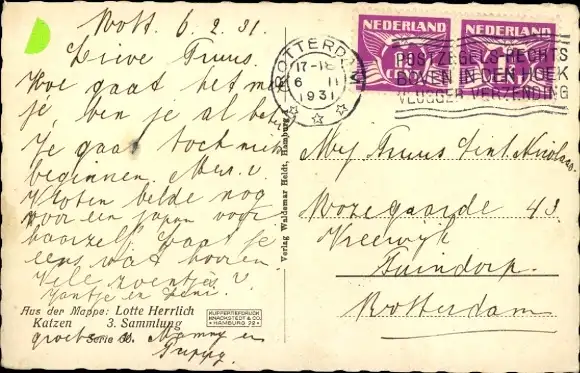 Rott. 6.2.31.
Lieve Truus.
Hoe gaat het met
je, ben je al be
Je gaat toch niet
beginnen. Mevr. v.
Kloten belde nog
voor een japon voor
haarzelf. Laat je
eens wat hooren.
Vele zoentjes v
Jantje en
Aus der Mappe: Lotte Herrlich
Katzen 3. Sammlung
Serie 30.
groeten v. Mammy en
KUPFERTIEFDRUCK
KNACKSTEDT & CO.
HAMBURG 22
Verlag Waldemar Heldt, Hamburg
ROTTERDAM
17-18
6 II
1931
NEDERLAND
NEDERLAND
POSTZEGELS RECHTS
BOVEN IN DEN HOEK
VLUGGER VERZENDING
Mej Truus Sint Nicolaas
Rozegaarde 43.
Vreewijk
Tuindorp.
Rotterdam